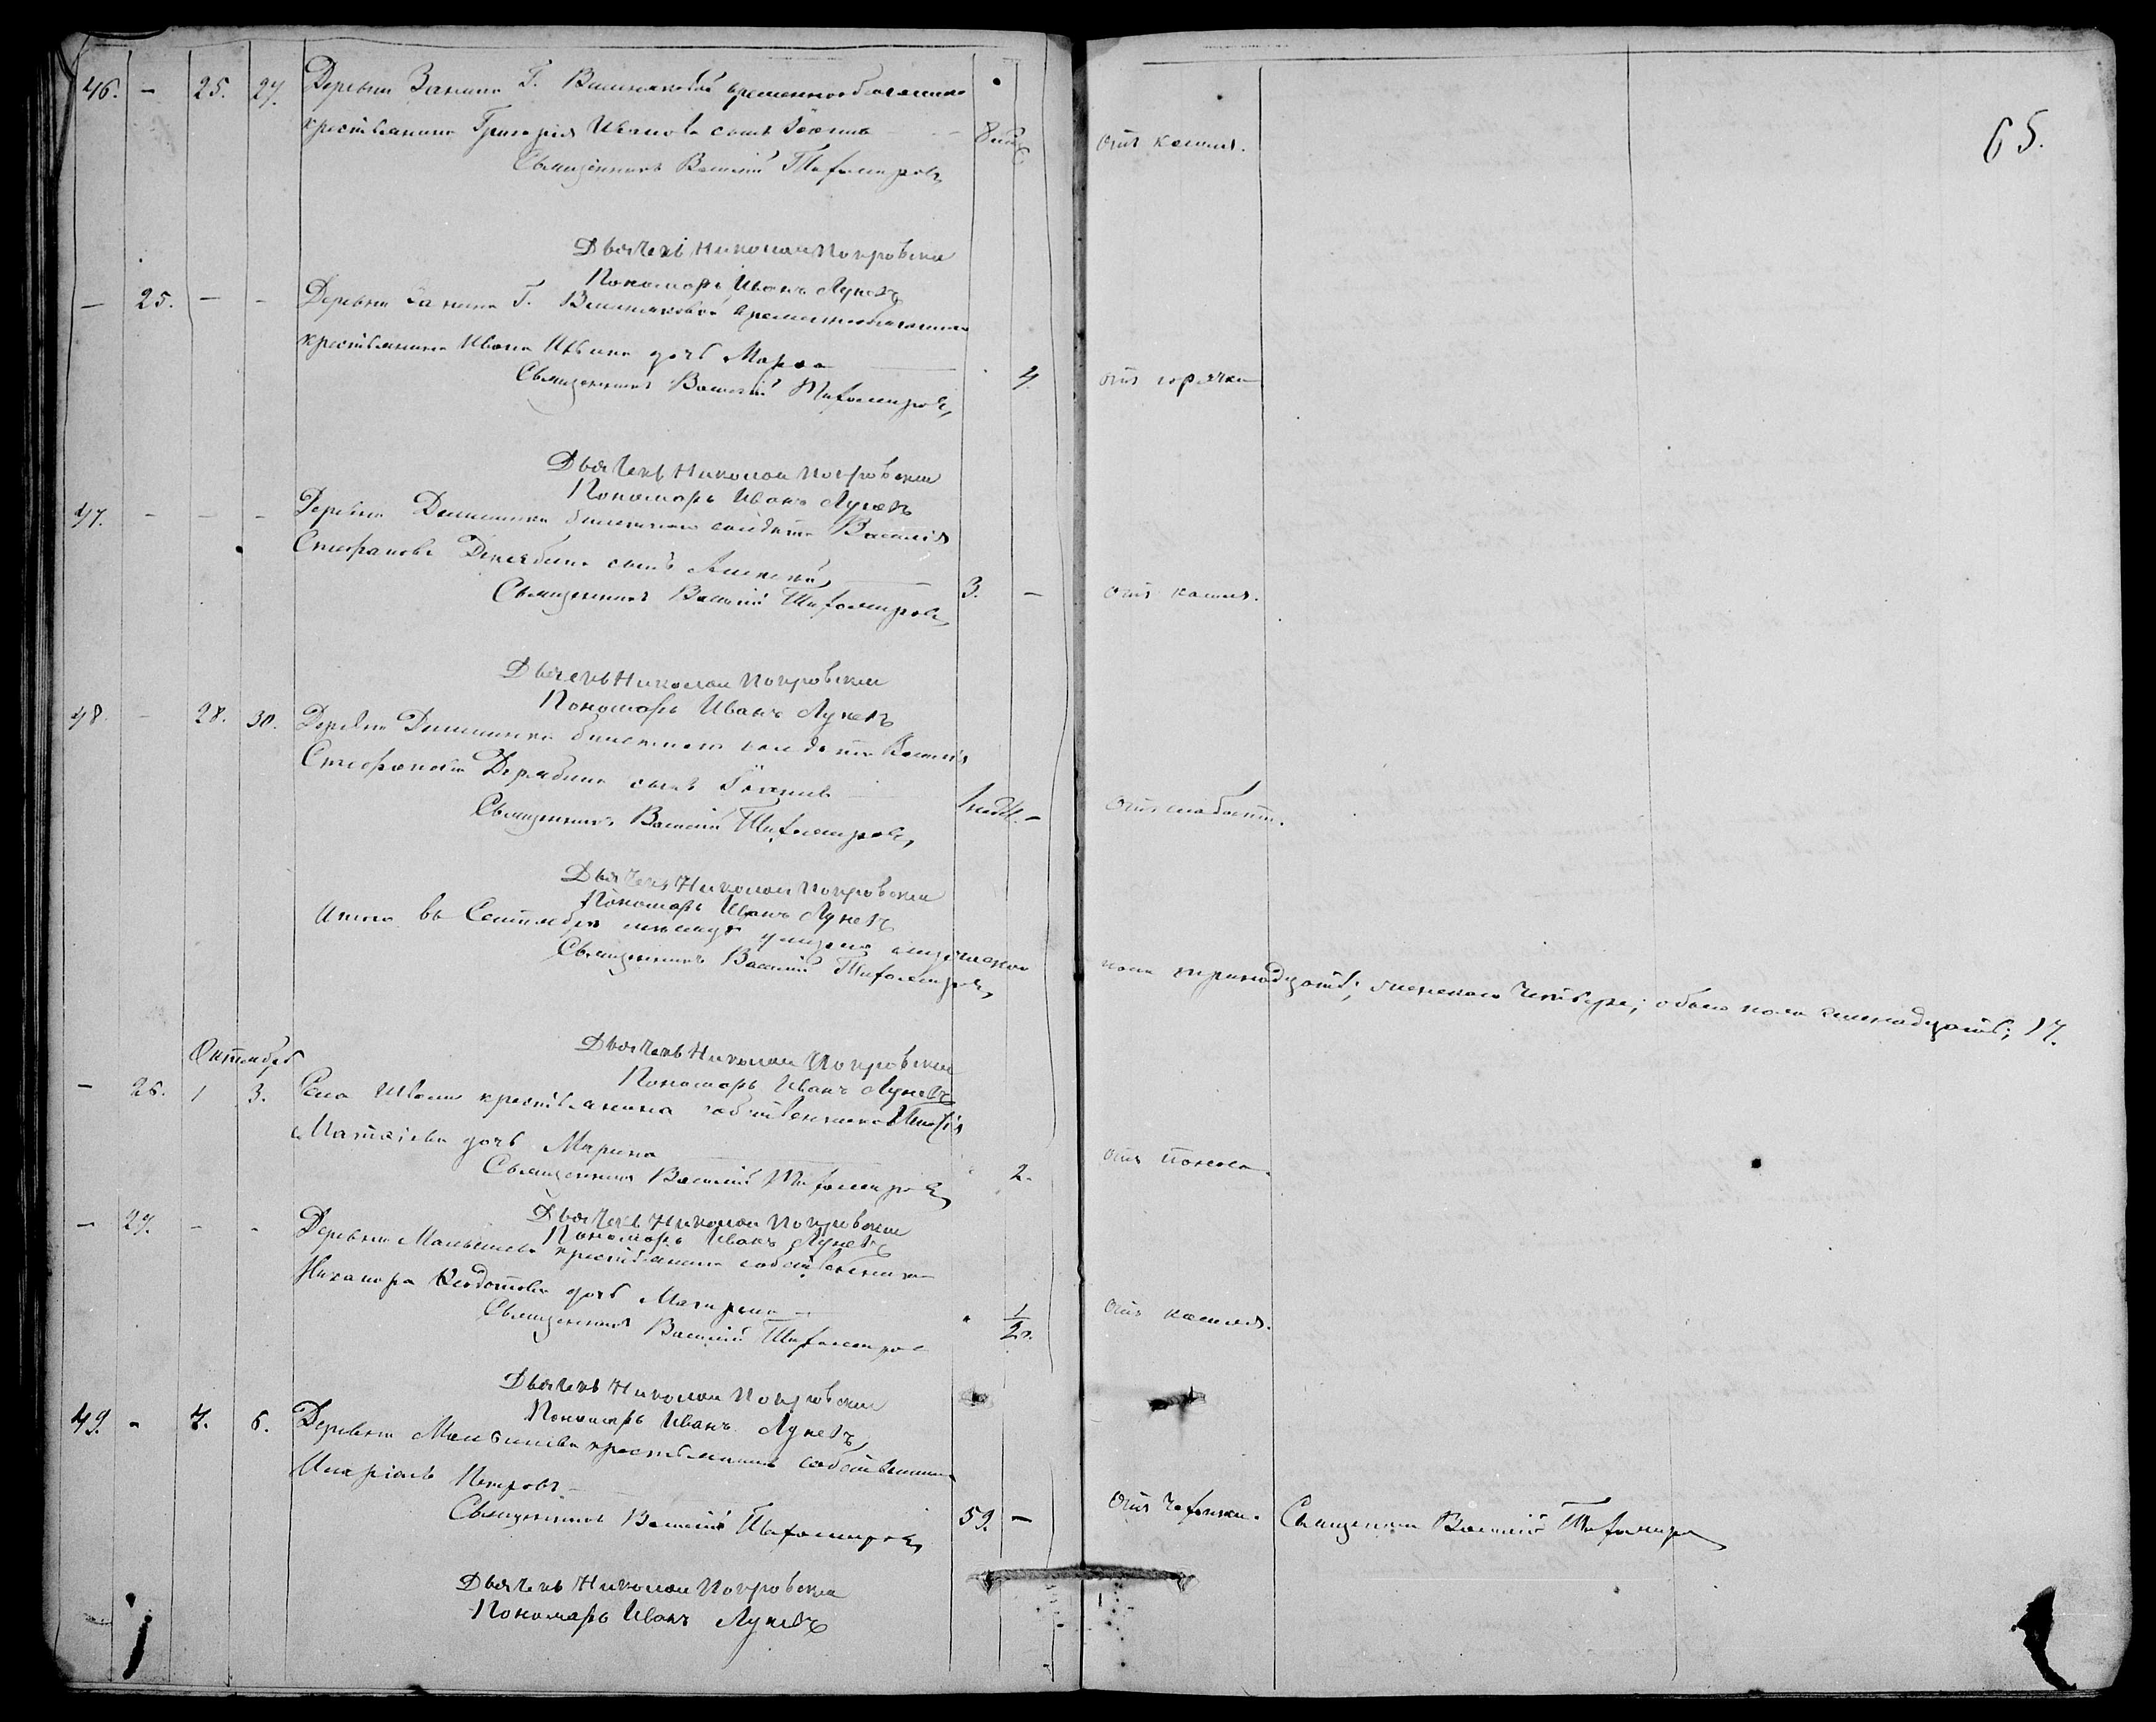 65.
46. - 25. 27. Деревни Занина Г. Вишняковой временнообязаннаго
крестьянина Григорія Иванова сынъ Іоаннъ 8 отъ кашля.
Священникъ Василій Тихомировъ
Дьячекъ Николай Покровскій
Пономарь Иванъ Луневъ
- 25. - - Деревни Занина Г. Вишняковой временнообязаннаго
крестьянина Ивана дочь Марѳа
Священникъ Василій Тихомировъ 4. отъ горячки
Дьячекъ Николай Покровскій
Пономарь Иванъ Луневъ
47. - - - Деревни билетнаго солдата Василія
Стефанова сынъ Алексѣй
Священникъ Василій Тихомировъ 3. - отъ кашля.
Дьячекъ Николай Покровскій
Пономарь Иванъ Луневъ
48. - 28. 30. Деревни билетнаго солдата Василія
Стефанова Дерябина сынъ Іоаннъ
Священникъ Василій Тихомировъ 1 нед. - отъ слабости.
Дьячекъ Николай Покровскій
Пономарь Иванъ Луневъ
Итого въ Сентябрѣ мѣсяцѣ умерло мужескаго пола тринадцать; женскаго четыре; обоего пола семнадцать; 17.
Священникъ Василій Тихомировъ
Дьячекъ Николай Покровскій
Пономарь Иванъ Луневъ
Октябрь
- 26. 1 3. Села крестьянина собственника
Матѳіева дочь Марина
Священникъ Василій Тихомировъ 2. отъ поноса.
Дьячекъ Николай Покровскій
Пономарь Иванъ Луневъ
- 27. - - Деревни Малышева крестьянина собственника
Никанора Ѳедотова дочь
Священникъ Василій Тихомировъ 1/2 г. отъ кашля.
Дьячекъ Николай Покровскій
Пономарь Иванъ Луневъ
49. - 4. 6. Деревни Малышева крестьянинъ собственникъ
Иларіонъ Петровъ
Священникъ Василій Тихомировъ 59. - отъ чахотки. Священникъ Василій Тихомировъ
Дьячекъ Николай Покровскій
Пономарь Иванъ Луневъ